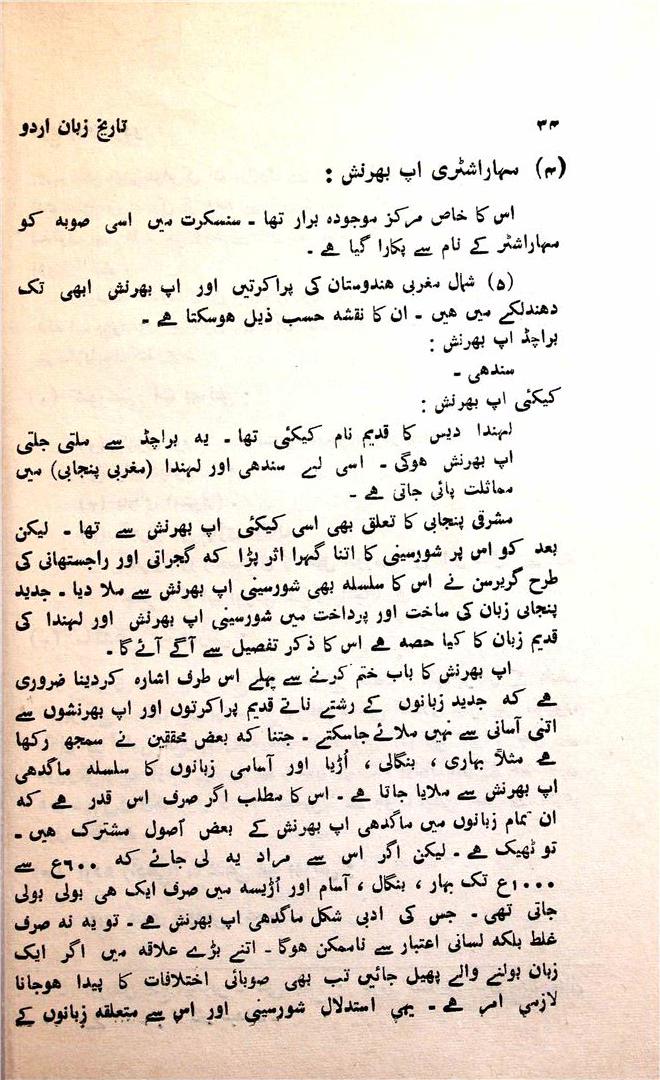 ۳۴ تاریخ زبان اردو
(۴) مہاراشٹری اپ بھرنش :
اس کا خاص مرکز موجودہ برار تھا ۔ سنسکرت میں اسی صوبہ کو
مہاراشٹر کے نام سے پکارا گیا ہے ۔
(۵) شمال مغربی ہندوستان کی پراکرتیں اور اپ بھرنش ابھی تک
دھندلکے میں ہیں ۔ ان کا نقشہ حسب ذیل ہوسکتا ہے ۔
براچڈ اپ بھرنش :
سندھی ۔
کیکئی اپ بھرنش :
لہندا دیس کا قدیم نام کیکئی تھا ۔ یہ براچڈ سے ملتی جلتی
اپ بھرنش ہوگی ۔ اسی لیے سندھی اور لہندا (مغربی پنجابی) میں
مماثلت پائی جاتی ہے ۔
مشرقی پنجابی کا تعلق بھی اسی کیکئی اپ بھرنش سے تھا ۔ لیکن
بعد کو اس پر شورسینی کا اتنا گہرا اثر پڑا کہ گجراتی اور راجستھانی کی
طرح گریرسن نے اس کا سلسلہ بھی شورسینی اپ بھرنش سے ملا دیا ۔ جدید
پنجابی زبان کی ساخت اور پرداخت میں شورسینی اپ بھرنش اور لہندا کی
قدیم زبان کا کیا حصہ ہے اس کا ذکر تفصیل سے آگے آئے گا ۔
اپ بھرنش کا باب ختم کرنے سے پہلے اس طرف اشارہ کردینا ضروری
ہے کہ جدید زبانوں کے رشتے ناتے قدیم پراکرتوں اور اپ بھرنشوں سے
اتنی آسانی سے نہیں ملائے جاسکتے ۔ جتنا کہ بعض محققین نے سمجھ رکھا
ہے مثلاً بہاری ، بنگالی ، اُڑیا اور آسامی زبانوں کا سلسلہ ماگدھی
اپ بھرنش سے ملایا جاتا ہے ۔ اس کا مطلب اگر صرف اس قدر ہے کہ
ان تمام زبانوں میں ماگدھی اپ بھرنش کے بعض اصول مشترک ہیں ۔
تو ٹھیک ہے ۔ لیکن اگر اس سے مراد یہ لی جائے کہ ۶۰۰ع سے
۱۰۰۰ع تک بہار ، بنگال ، آسام اور اُڑیسہ میں صرف ایک ہی بولی بولی
جاتی تھی ۔ جس کی ادبی شکل ماگدھی اپ بھرنش ہے ۔ تو یہ نہ صرف
غلط بلکہ لسانی اعتبار سے ناممکن ہوگا ۔ اتنے بڑے علاقہ میں اگر ایک
زبان بولنے والے پھیل جائیں تب بھی صوبائی اختلافات کا پیدا ہوجانا
لازمی امر ہے ۔ یہی استدلال شورسینی اور اس سے متعلقہ زبانوں کے